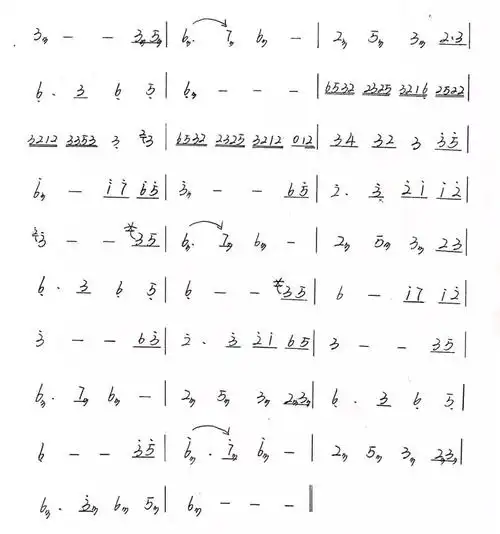 3 - - 3 5 | 6 . 7 6 - | 2 5 3 2·3 |
6 . 3 6 5 | 6 - - - | 6532 2325 3216 2522 |
3212 3353 3 3 | 6532 2325 3212 012 | 34 32 3 35 |
6 - i7 65 | 3 - - 65 | 2 . 3 2i i2 |
3 - - 35 | 6 . 7 6 - | 2 5 3 23 |
6 . 3 6 5 | 6 - - 35 | 6 - i7 i2 |
3 - - 63 | 2 . 3 2i 65 | 3 - - 35 |
6 . 7 6 - | 2 5 3 23 | 6 . 3 6 5 |
6 - - 35 | 6 . 7 6 - | 2 5 3 23 |
6 . 3 6 5 | 6 - - - ‖